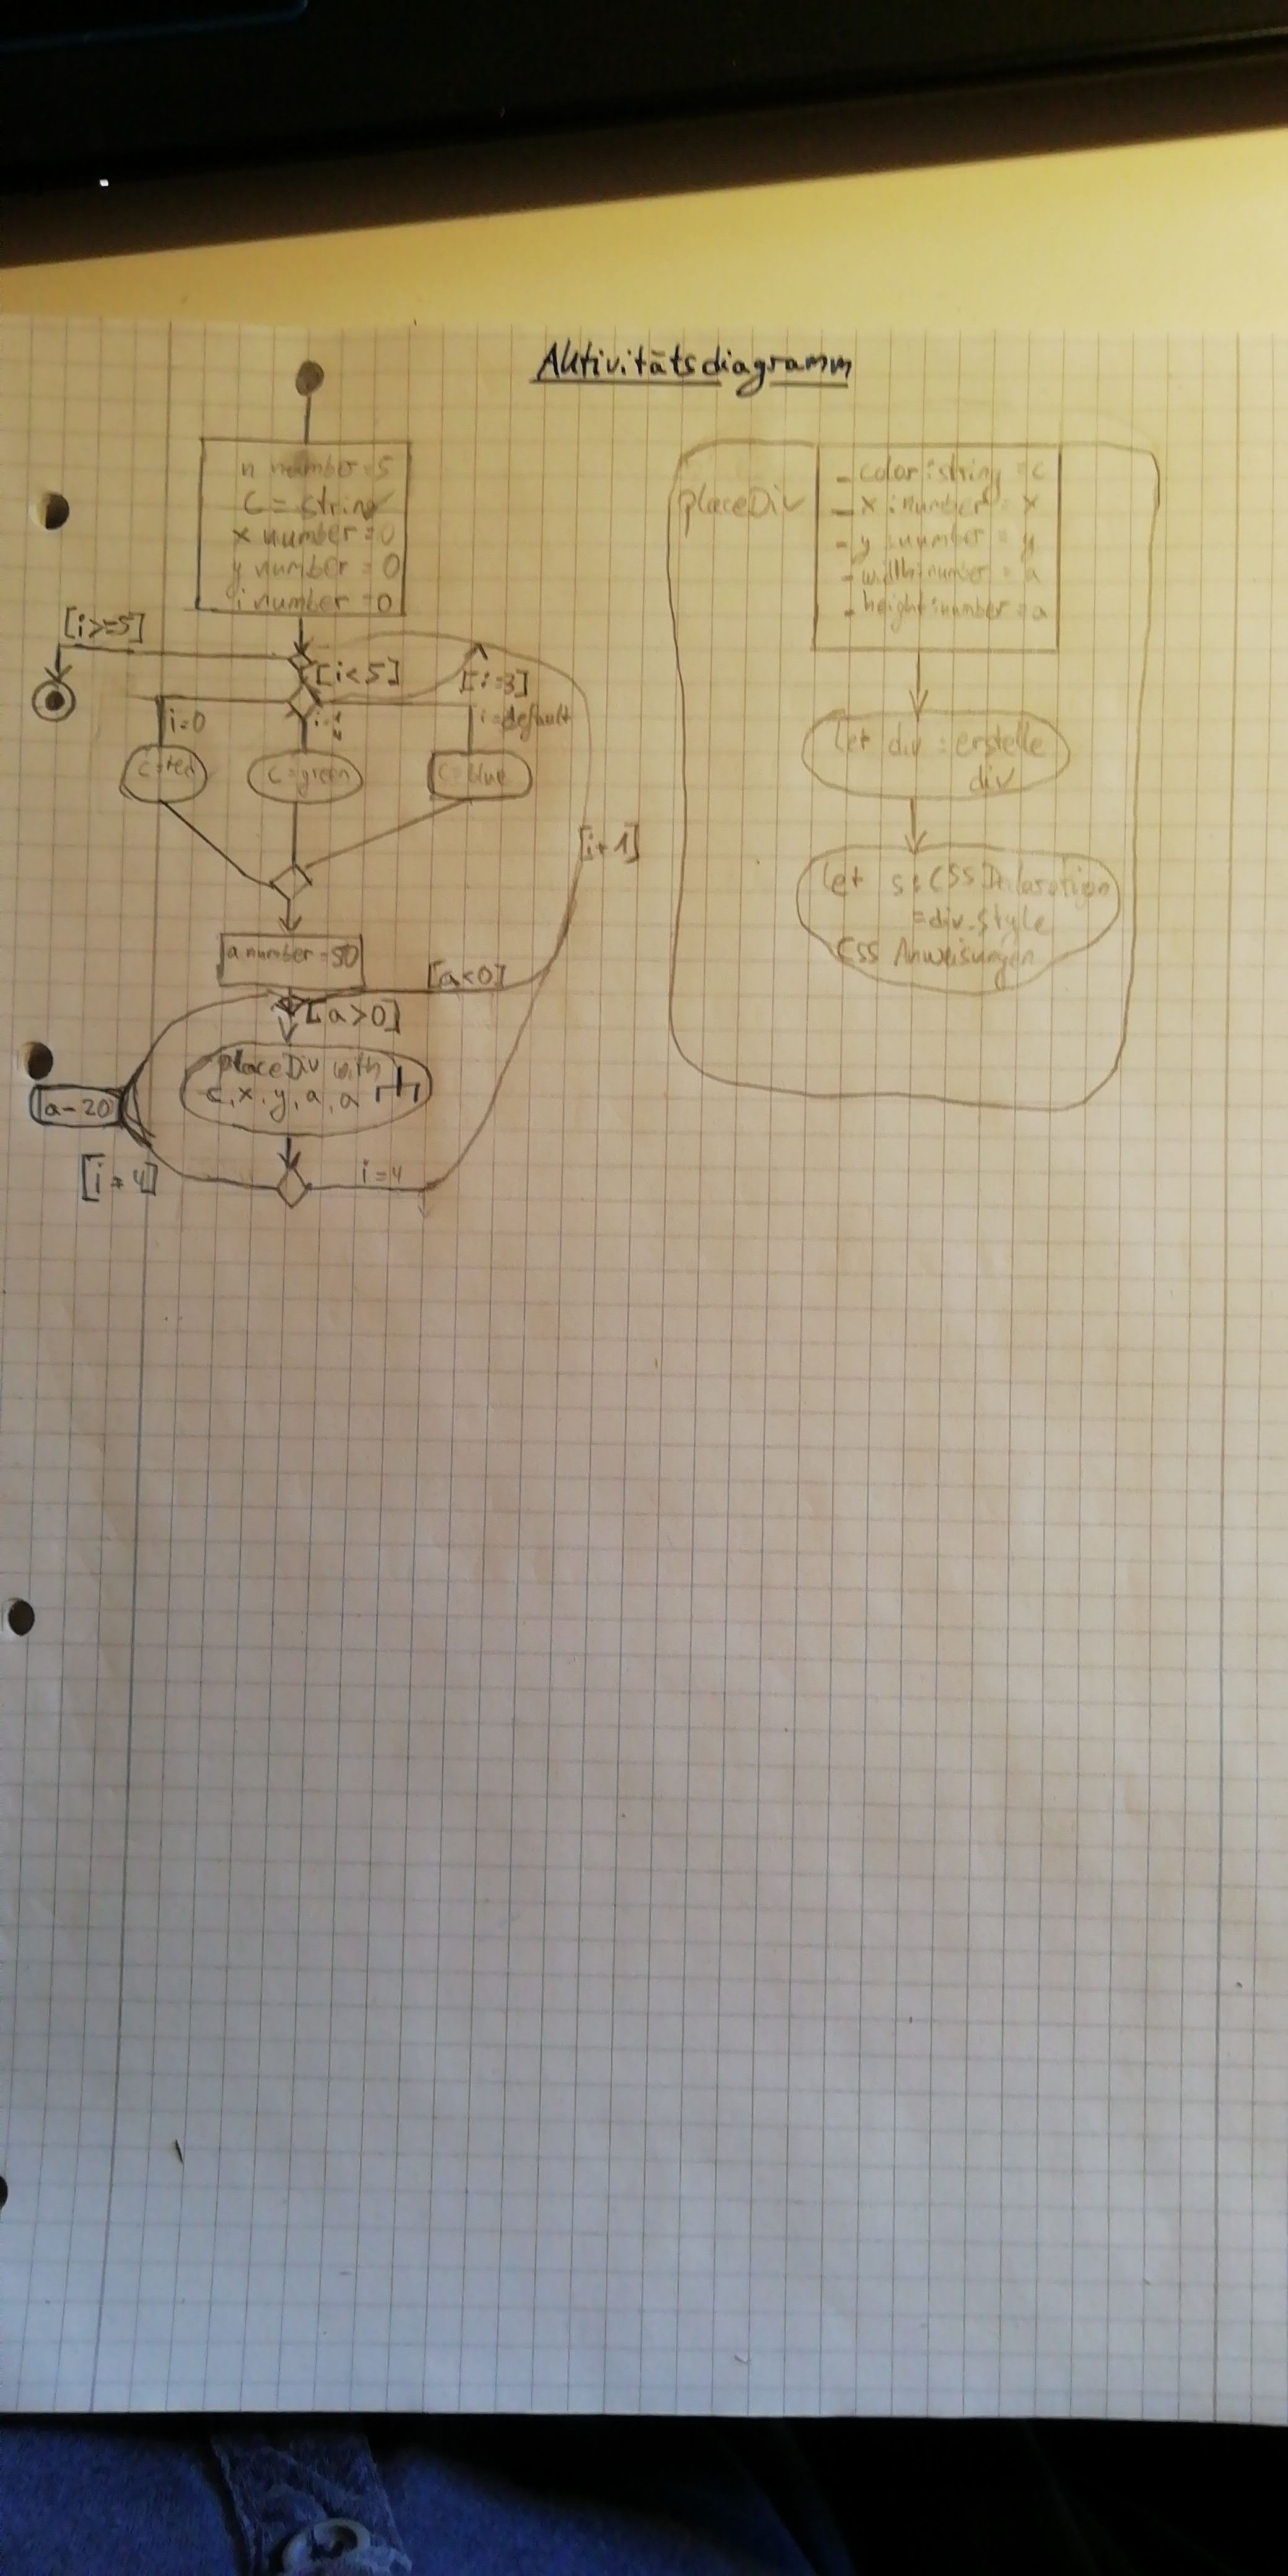 Aktivitätsdiagramm
n number = 5
C = string
x number = 0
y number = 0
i number = 0
[i>=5]
[i<5]
[i=3]
i=0
i=default
c=red
c=green
c=blue
[i+1]
a number = 50
[a<0]
[a>0]
placeDiv with
c, x, y, a, a
a-20
i=4
placeDiv
- color : string = c
- x : number = x
- y : number = y
- width : number = a
- height : number = a
let div : erstelle
div
let s : CSS
= div.style
CSS Anweisungen